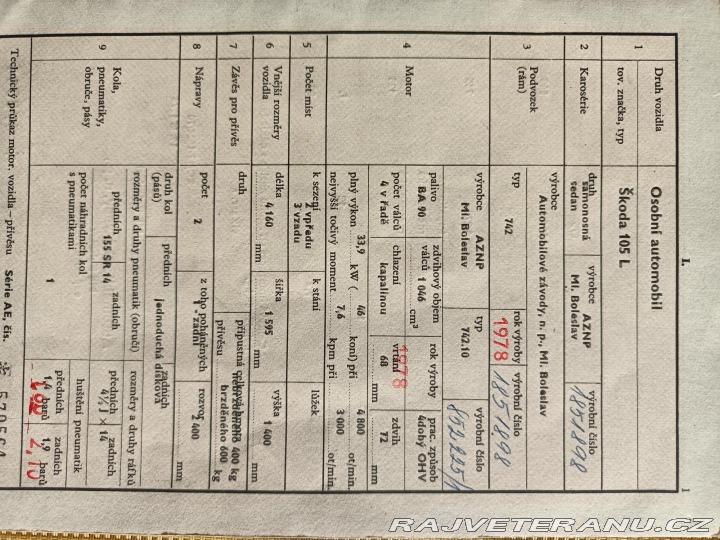 I.
1
1
Druh vozidla
tov. značka, typ
Osobní automobil
Škoda 105 L
2
Karosérie
druh
samonosná
sedan
výrobce
AZNP
Ml. Boleslav
výrobní číslo
3
Podvozek
(rám)
výrobce
Automobilové závody, n. p., Ml. Boleslav
typ
742
rok výroby
1978
výrobní číslo
4
Motor
výrobce
AZNP
Ml. Boleslav
typ
742.10
výrobní číslo
palivo
BA 90
zdvihový objem
válců 1 046
cm³
rok výroby
1978
prac. způsob
4dobý OHV
počet válců
4 v řadě
chlazení
kapalinou
vrtání
68
mm
zdvih
72
mm
plný výkon 33,9 kW ( 46 koní) při 4 800 ot/min.
nejvyšší točivý moment 7,6 kpm při 3 000 ot/min.
5
Počet míst
k sezení
2 vpředu
3 vzadu
k stání
lůžek
6
Vnější rozměry
vozidla
délka
4 160
mm
šířka
1 595
mm
výška
1 400
mm
7
Závěs pro přívěs
druh
přípustná celková hmota
přívěsu
nebrzděného 400 kg
brzděného 600 kg
8
Nápravy
počet
2
z toho poháněných
1 - zadní
rozvor
2 400
mm
9
Kola,
pneumatiky,
obruče, pásy
druh kol
(pásů)
předních
jednoduchá disková
zadních
rozměry a druhy pneumatik (obručí)
předních
155 SR 14
zadních
rozměry a druhy ráfků
předních
4½ J × 14
zadních
počet náhradních kol
s pneumatikami
1
huštění pneumatik
předních
1,4 barů
zadních
1,9 barů
2,10
Technický průkaz motor. vozidla – přívěsu Série AE, čís.
RAJVETERANU.CZ